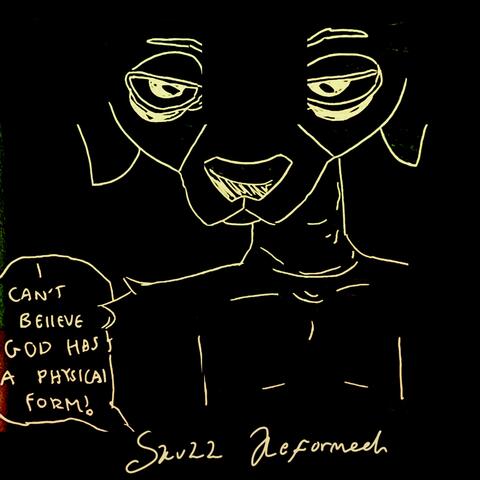 I
CAN'T
BELIEVE
GOD HAS
A PHYSICAL
FORM!
Skuzz